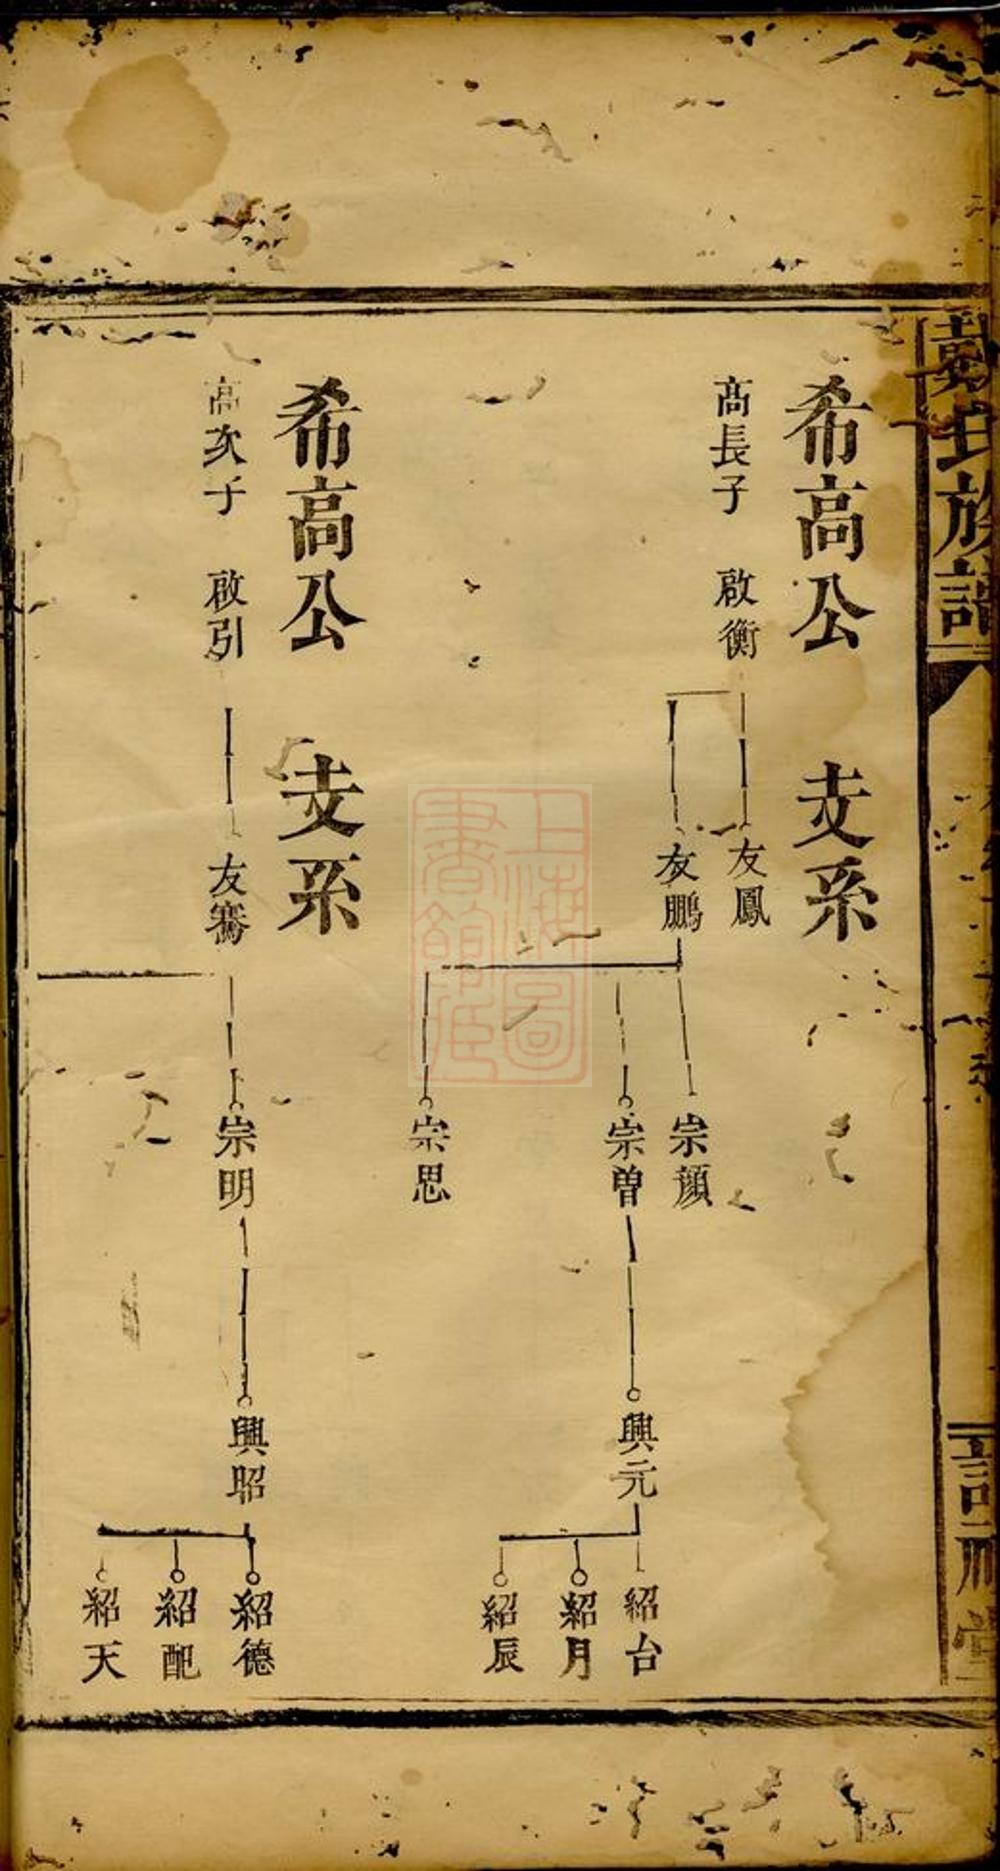 戴氏族譜
希高公 支系
高長子 啟衡
友鳳
友鵬
宗顏
宗曾
宗思
興元
紹台
紹月
紹辰
希高公 支系
高次子 啟引
友騫
宗明
興昭
紹德
紹配
紹天
上海圖書館藏